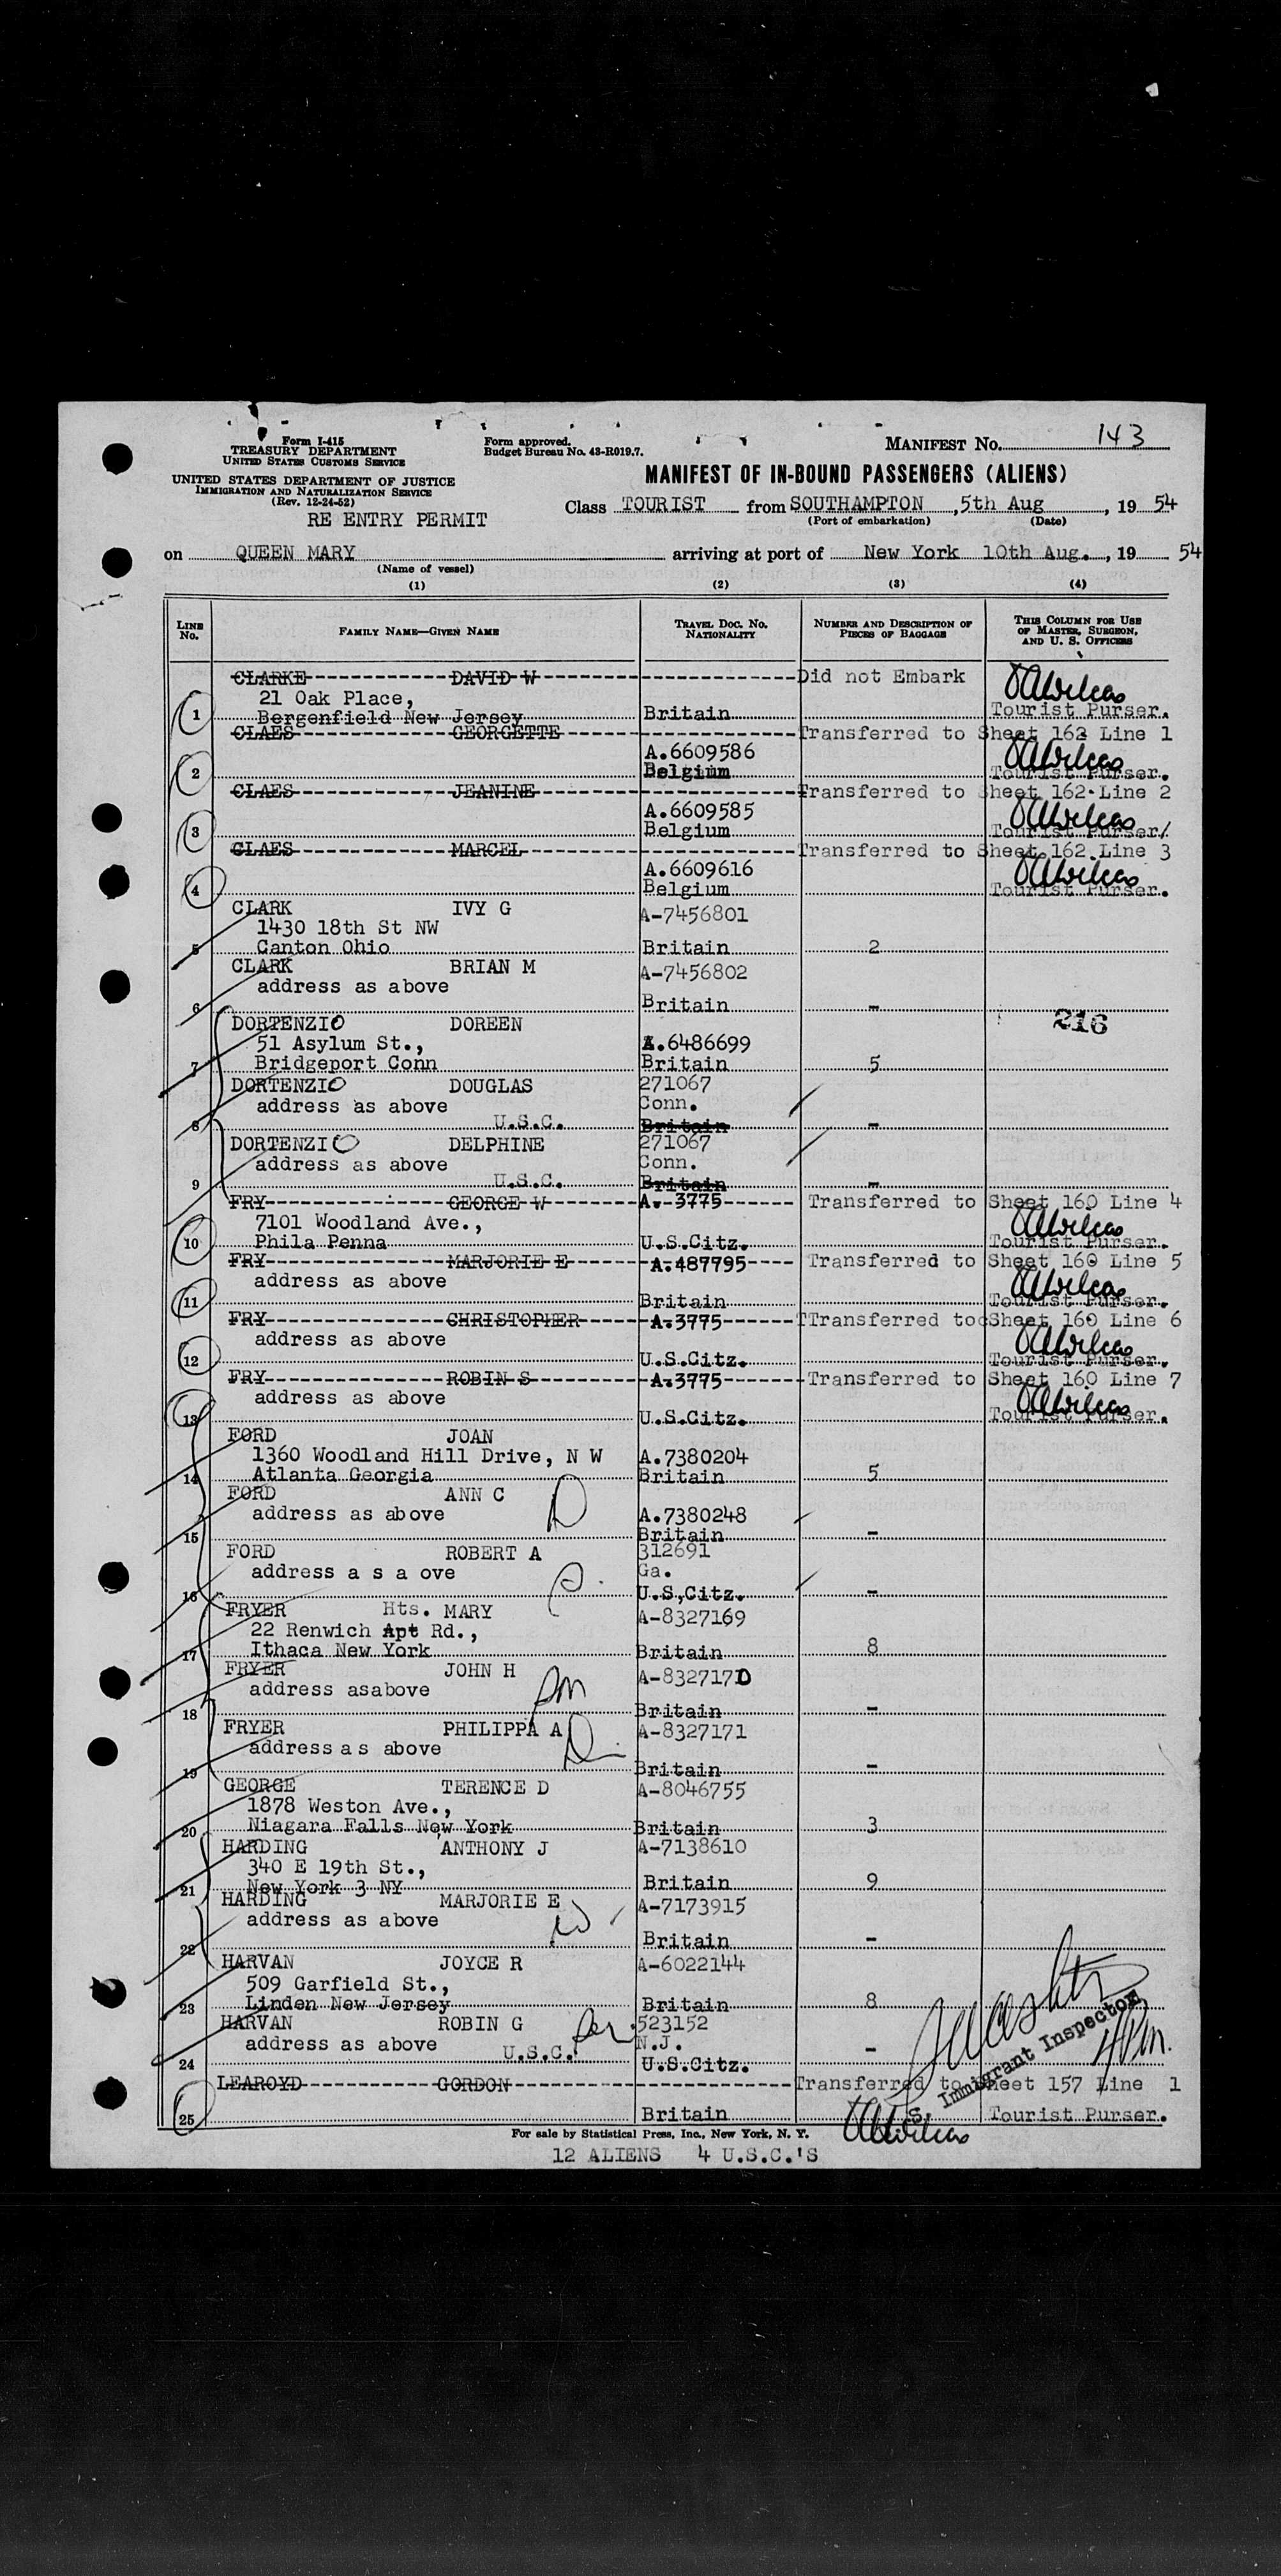 Form I-415
TREASURY DEPARTMENT
UNITED STATES CUSTOMS SERVICE
UNITED STATES DEPARTMENT OF JUSTICE
IMMIGRATION AND NATURALIZATION SERVICE
(Rev. 12-24-52)
RE ENTRY PERMIT
Form approved.
Budget Bureau No. 43-R019.7.
MANIFEST No. 143
MANIFEST OF IN-BOUND PASSENGERS (ALIENS)
Class TOURIST from SOUTHAMPTON, 5th Aug, 19 54
(Port of embarkation) (Date)
on QUEEN MARY arriving at port of New York 10th Aug., 19 54
(Name of vessel)
(1) (2) (3) (4)
LINE No. FAMILY NAME—GIVEN NAME TRAVEL DOC. No. NATIONALITY NUMBER AND DESCRIPTION OF PIECES OF BAGGAGE THIS COLUMN FOR USE OF MASTER, SURGEON, AND U. S. OFFICERS
CLARKE DAVID W Did not Embark
21 Oak Place,
1 Bergenfield New Jersey Britain Tourist Purser.
CLAES GEORGETTE Transferred to Sheet 162 Line 1
A.6609586
2 Belgium Tourist Purser.
CLAES JEANINE Transferred to Sheet 162 Line 2
A.6609585
3 Belgium Tourist Purser/
CLAES MARCEL Transferred to Sheet 162 Line 3
A.6609616
4 Belgium Tourist Purser.
CLARK IVY G A-7456801
1430 18th St NW
5 Canton Ohio Britain 2
CLARK BRIAN M A-7456802
address as above
6 Britain -
DORTENZIO DOREEN 216
51 Asylum St., A.6486699
7 Bridgeport Conn Britain 5
DORTENZIO DOUGLAS 271067
address as above Conn.
8 U.S.C. Britain -
DORTENZIO DELPHINE 271067
address as above Conn.
9 U.S.C. Britain -
FRY GEORGE W A.3775 Transferred to Sheet 160 Line 4
7101 Woodland Ave.,
10 Phila Penna U.S.Citz. Tourist Purser.
FRY MARJORIE E A.487795 Transferred to Sheet 160 Line 5
address as above
11 Britain Tourist Purser.
FRY CHRISTOPHER A.3775 TTransferred tocSheet 160 Line 6
address as above
12 U.S.Citz. Tourist Purser.
FRY ROBIN S A.3775 Transferred to Sheet 160 Line 7
address as above
13 U.S.Citz. Tourist Purser.
FORD JOAN
1360 Woodland Hill Drive, N W A.7380204
14 Atlanta Georgia Britain 5
FORD ANN C
address as above A.7380248
15 Britain -
FORD ROBERT A 312691
address a s a ove Ga.
16 U.S,Citz. -
FRYER Hts. MARY A-8327169
22 Renwich Apt Rd.,
17 Ithaca New York Britain 8
FRYER JOHN H A-8327170
address asabove
18 Britain -
FRYER PHILIPPA A A-8327171
address a s above
19 Britain -
GEORGE TERENCE D A-8046755
1878 Weston Ave.,
20 Niagara Falls New York Britain 3
HARDING ANTHONY J A-7138610
340 E 19th St.,
21 New York 3 NY Britain 9
HARDING MARJORIE E A-7173915
address as above
22 Britain -
HARVAN JOYCE R A-6022144
509 Garfield St.,
23 Linden New Jersey Britain 8
HARVAN ROBIN G 523152
address as above N.J.
24 U.S.C. U.S.Citz. -
Immigrant Inspector
LEAROYD GORDON Transferred to Sheet 157 Line 1
25 Britain Tourist Purser.
For sale by Statistical Press, Inc., New York, N. Y.
12 ALIENS 4 U.S.C.'S